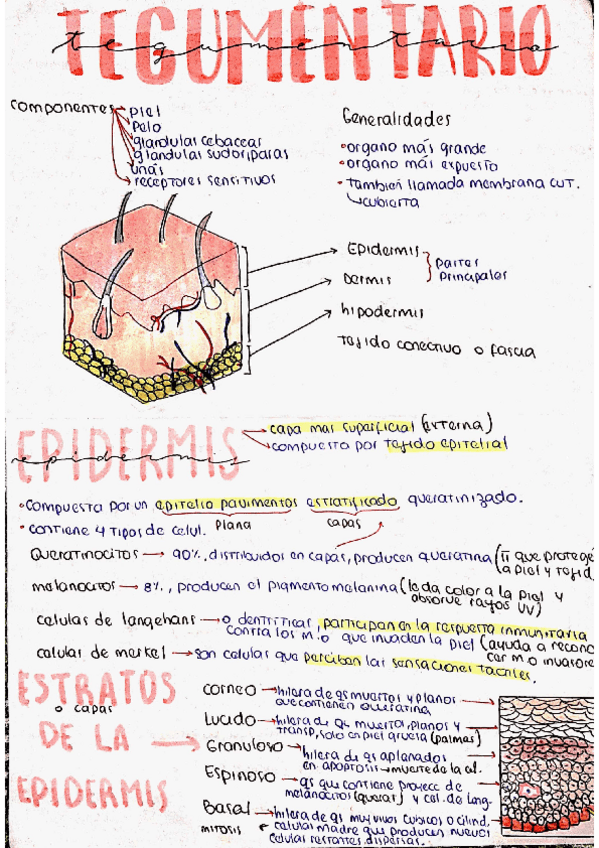 TEGUMENTARIO
tegumentario
componentes
piel
Pelo
glandulas cebaceas
glandulas sudoriparas
uñas
receptores sensitivos
Generalidades
• organo más grande
• organo más expuesto
• También llamada membrana cut.
cubierta
Epidermis
Dermis
Partes
principales
hipodermis
Tejido conectivo o fascia
EPIDERMIS
epidermis
capa mas superficial (externa)
compuesta por tejido epitelial
• compuesta por un epitelio pavimentos estratificado queratinizado.
Plana
capas
• contiene 4 tipos de celul.
Queratinocitos → 90%, distribuidos en capas, producen queratina (π que protege
a piel y tejid
melanocitos → 8%, producen el pigmento melanina (le da color a la piel y
absorve rayos UV)
celulas de langehans → o dentriticas, participan en la respuesta inmunitaria
contra los m.o que invaden la piel (ayuda a recono
cer m.o invasore
celulas de merkel → son celulas que perciben las sensaciones tactiles.
ESTRATOS
o capas
DE LA
EPIDERMIS
corneo → hilera de qs muertos y planos
que contienen queratina
Lucido → hilera de qs muertos, planos y
transp, solo en piel gruesa (palmas)
Granuloso → hilera de qs aplanados
en apoptosis → muerte de la cel.
Espinoso → qs que contiene proyecc de
melanocitos (querat) y cel. de lang.
Basal → hilera de qs muy vivos cubicos o cilind,
mitosis
celulas madre que producen nuevas
celulas restantes dispersas.